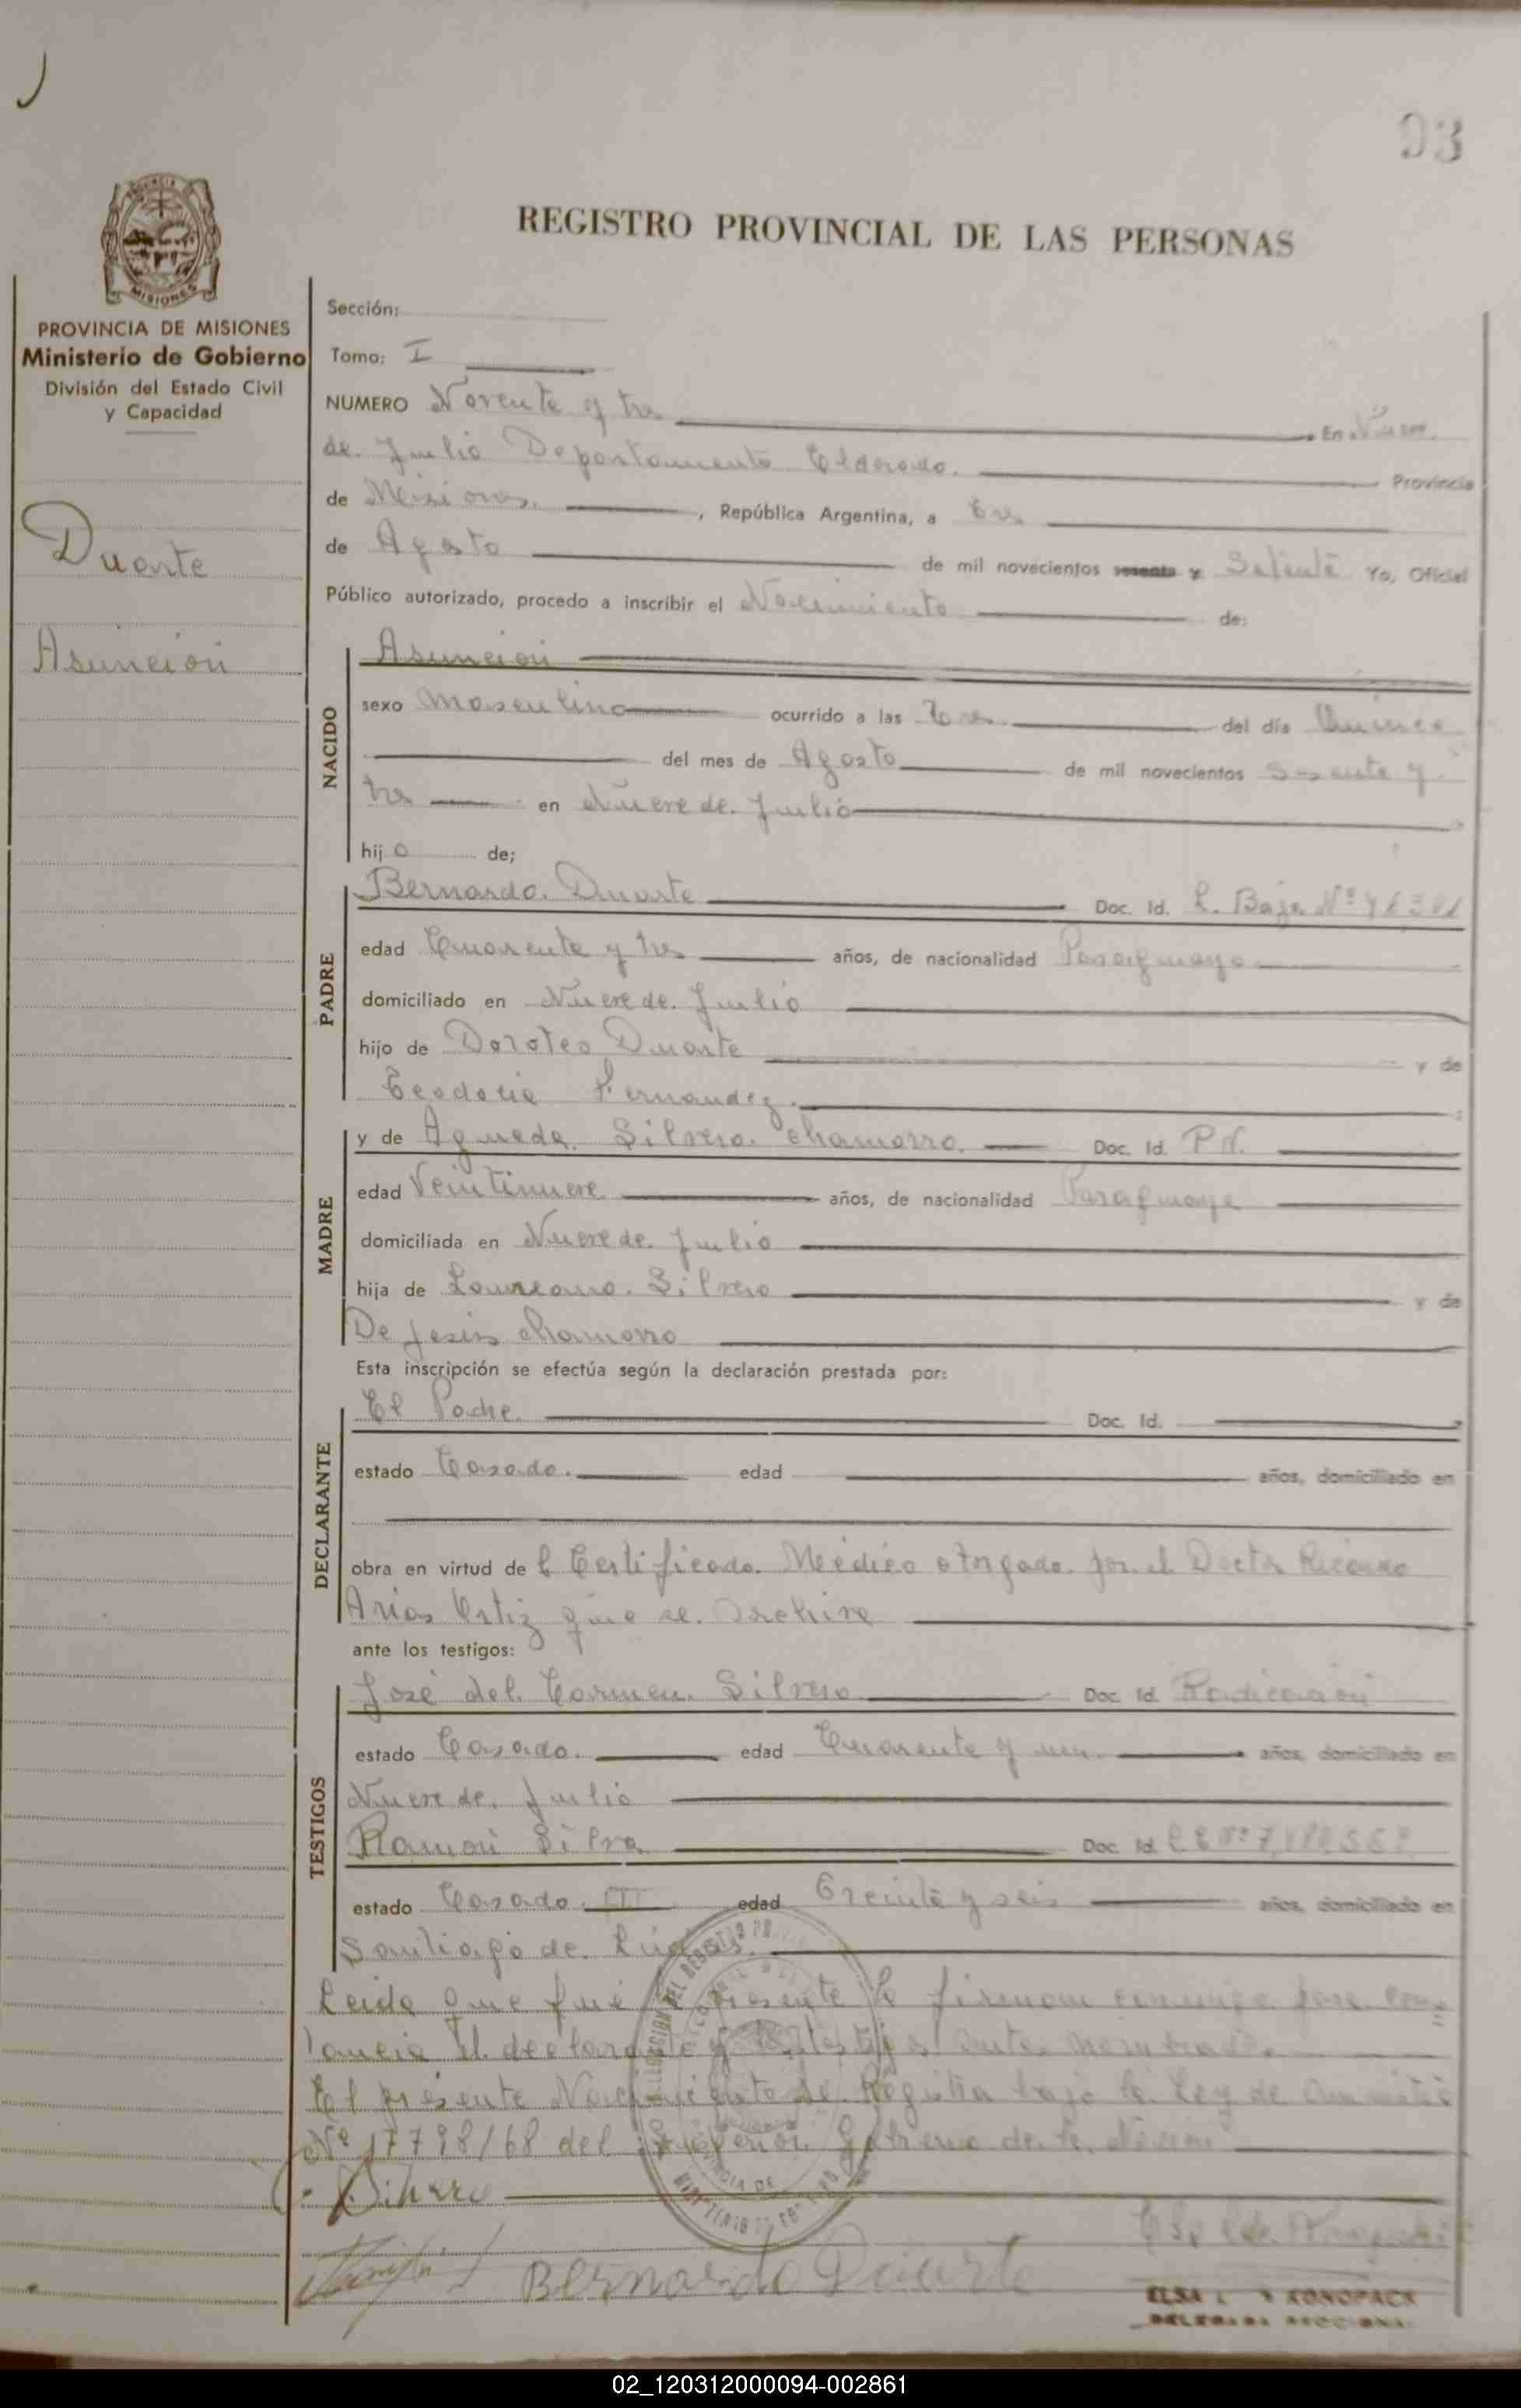 93
REGISTRO PROVINCIAL DE LAS PERSONAS
PROVINCIA DE MISIONES
Ministerio de Gobierno
División del Estado Civil
y Capacidad
Duarte
Asunción
Sección:
Tomo: I
NUMERO Noventa y tres En Nueve
de Julio Departamento Eldorado. Provincia
de Misiones, República Argentina, a tres
de Agosto de mil novecientos sesenta y Setenta Yo, Oficial
Público autorizado, procedo a inscribir el Nacimiento de:
NACIDO
Asunción
sexo Masculino ocurrido a las Tres del día Quince
del mes de Agosto de mil novecientos Sesenta y
tres en Nueve de Julio
hijo de;
PADRE
Bernardo Duarte Doc. Id. L. Baja Nº
edad Cuarenta y tres años, de nacionalidad Paraguayo
domiciliado en Nueve de Julio
hijo de Doroteo Duarte y de
Fernandez.
MADRE
y de Agueda Silvero Chamorro. Doc. Id. P.N.
edad Veintinueve años, de nacionalidad Paraguaya
domiciliada en Nueve de Julio
hija de Laureano Silvero y de
De Jesús Chamorro
Esta inscripción se efectúa según la declaración prestada por:
DECLARANTE
El Padre. Doc. Id.
estado Casado. edad años, domiciliado en
obra en virtud del Certificado Médico otorgado por el Doctor Ricardo
Arias Ortiz que se Archiva
ante los testigos:
TESTIGOS
José del Carmen Silvero Doc. Id. Radicación
estado Casado. edad Cuarenta y un años, domiciliado en
Nueve de Julio
Ramón Silva Doc. Id.
estado Casado edad Treinta y seis años, domiciliado en
Santiago de Liniers.
Leida que fué la presente la firman conmigo para cons=
tancia el declarante y los testigos antes nombrados.
El presente Nacimiento se Registra bajo la Ley de Amnistia
Nº 17798/68 del Superior Gobierno de la Nación
Bernardo Duarte
ELSA KONOPACK
DELEGADA SECCIONAL
02_120312000094-002861